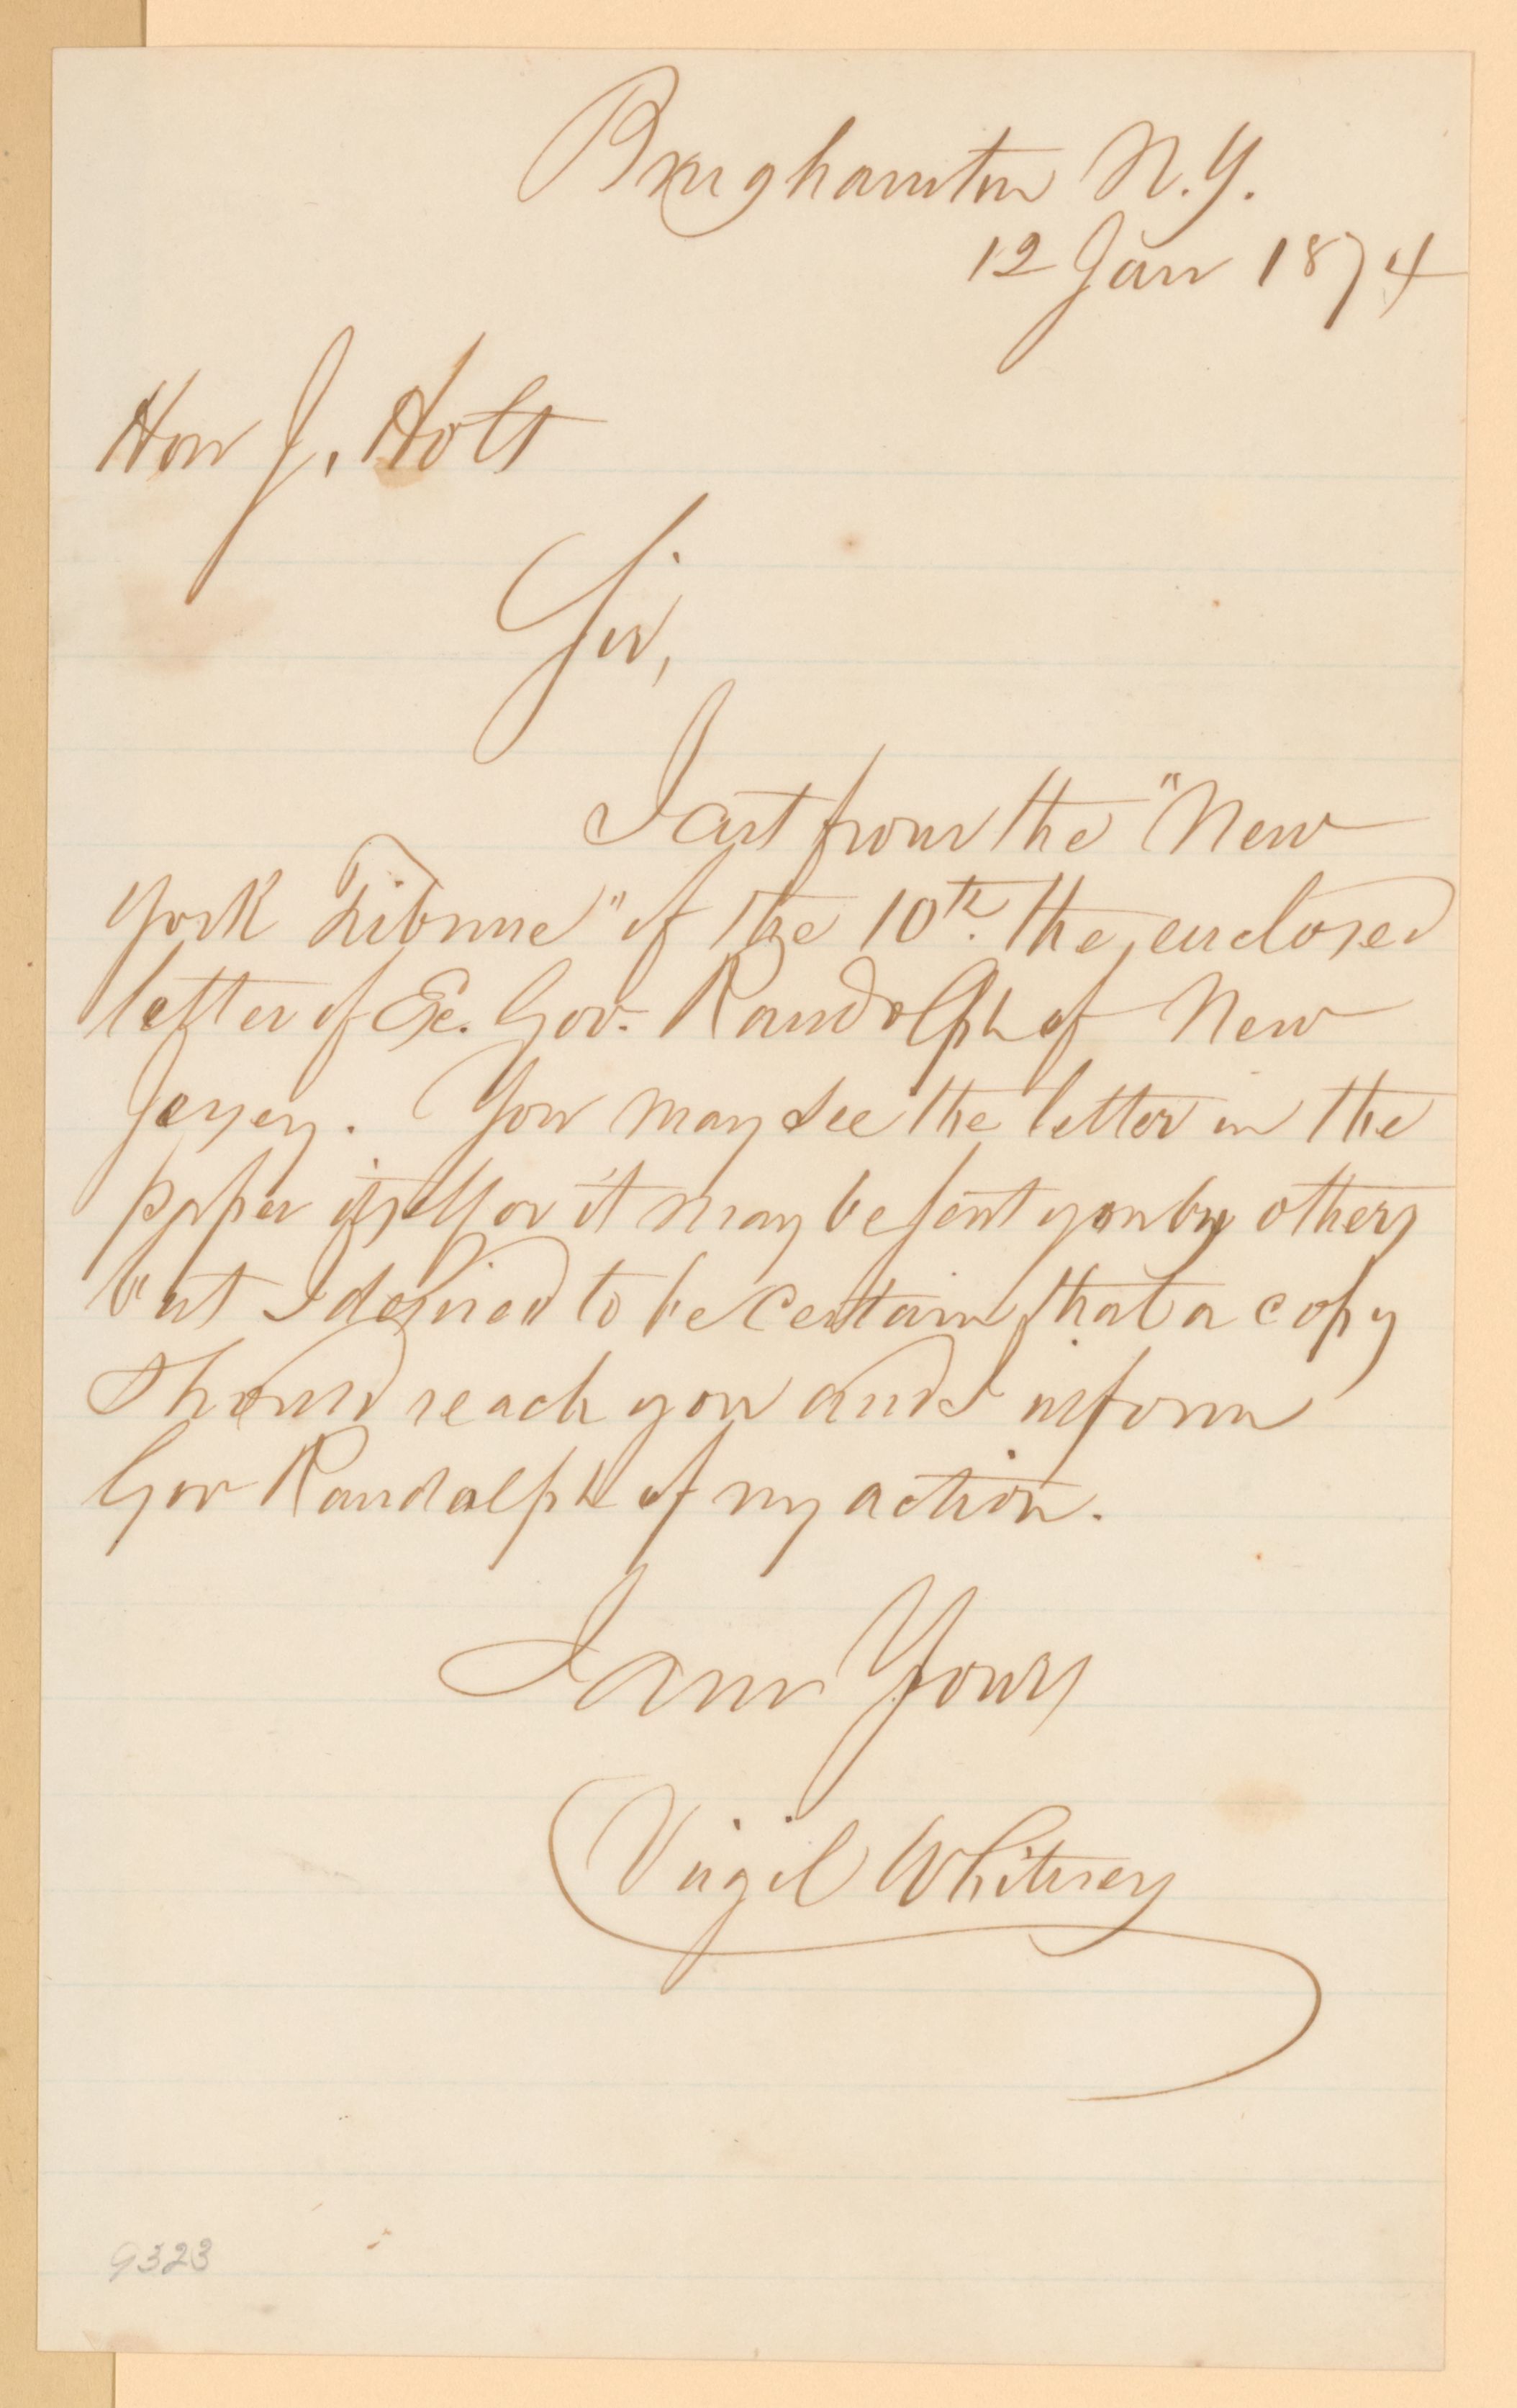 Binghamton N.Y.
12 Jan 1874
Hon J. Holt
Sir,
I cut from the "New
York Tribune" of the 10th. the enclosed
letter of Ex. Gov. Randolph of New
Jersey. You may see the letter in the
paper itself or it may be sent you by others
but I desired to be certain that a copy
should reach you and I inform
Gov Randolph of my action.
I am Yours
Virgil Whitney
9323